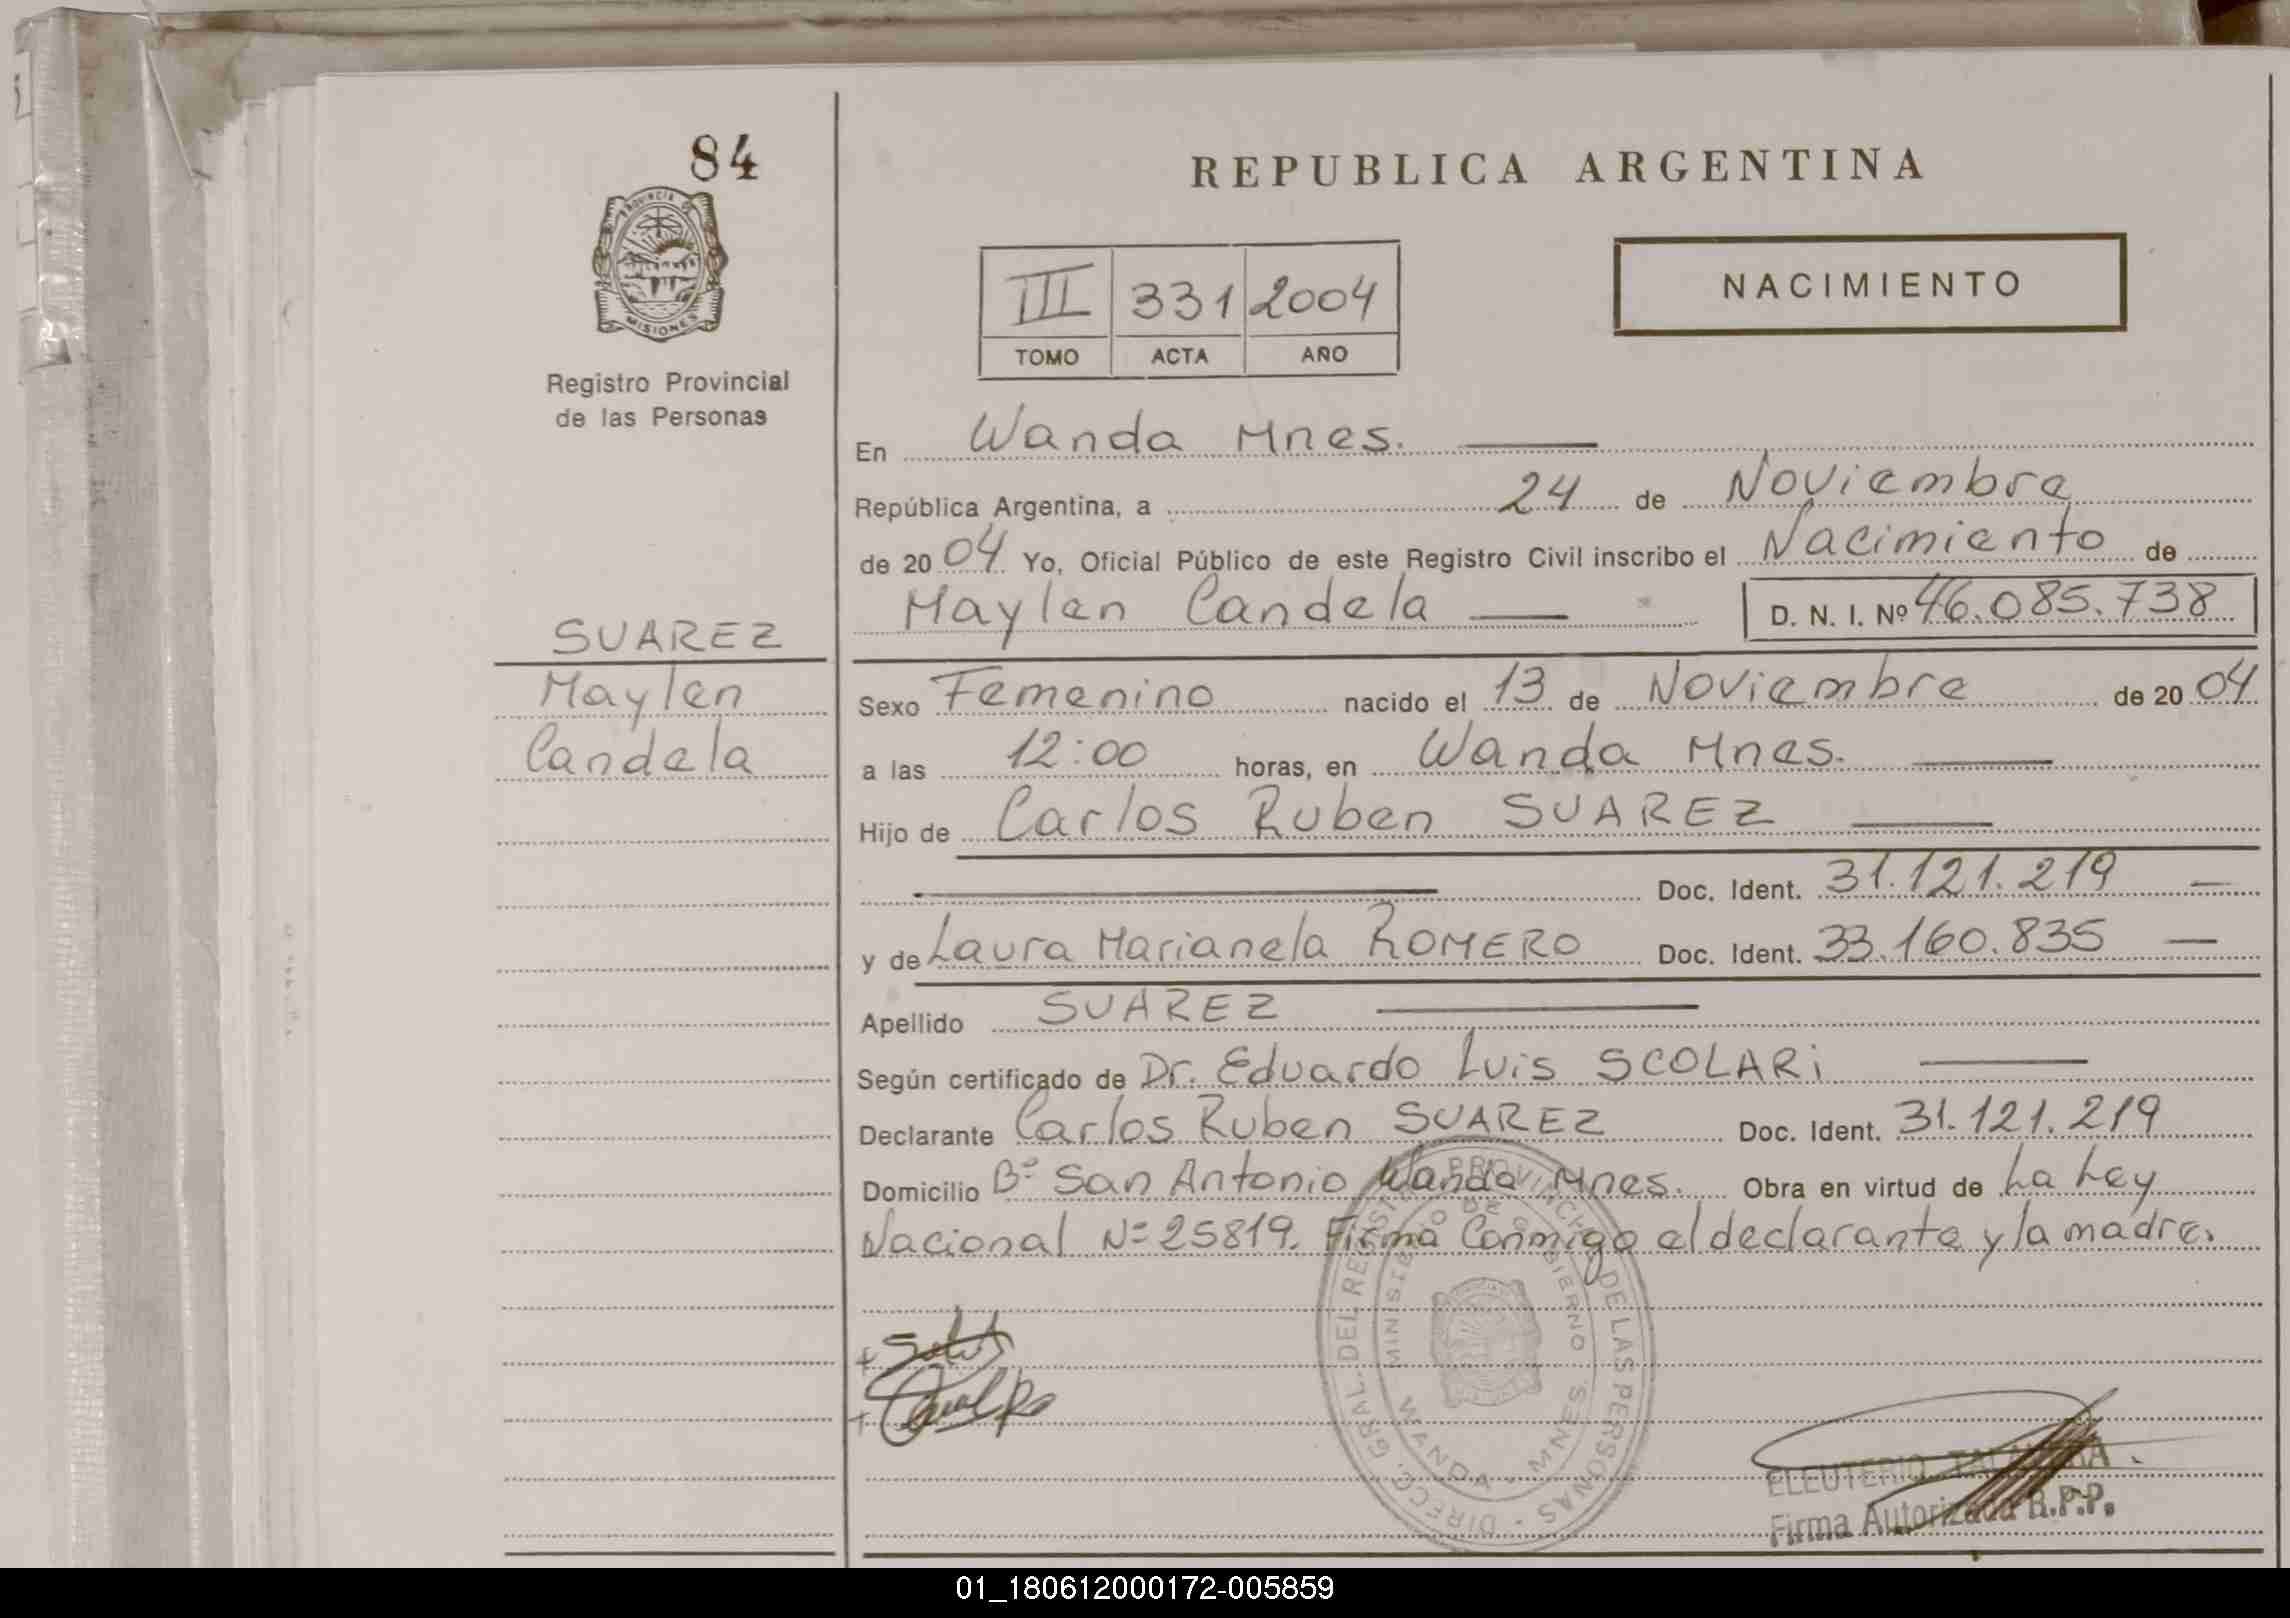 84
PROVINCIA DE
MISIONES
Registro Provincial
de las Personas
SUAREZ
Maylen
Candela
REPUBLICA ARGENTINA
III 331 2004
TOMO ACTA AÑO
NACIMIENTO
En Wanda Mnes.
República Argentina, a 24 de Noviembre
de 2004 Yo, Oficial Público de este Registro Civil inscribo el Nacimiento de
Maylen Candela D. N. I. Nº 46.085.738
Sexo Femenino nacido el 13 de Noviembre de 2004
a las 12:00 horas, en Wanda Mnes.
Hijo de Carlos Ruben SUAREZ
Doc. Ident. 31.121.219
y de Laura Marianela ROMERO Doc. Ident. 33.160.835
Apellido SUAREZ
Según certificado de Dr. Eduardo Luis SCOLARi
Declarante Carlos Ruben SUAREZ Doc. Ident. 31.121.219
Domicilio Bº San Antonio Wanda Mnes. Obra en virtud de La Ley
Nacional Nº 25819. Firma Conmigo el declarante y la madre.
DIRECC. GRAL. DEL REGISTRO PROVINCIAL DE LAS PERSONAS
MINISTERIO DE GOBIERNO
WANDA - MNES.
ELEUTERIO
Firma Autorizada R.P.P.
01_180612000172-005859